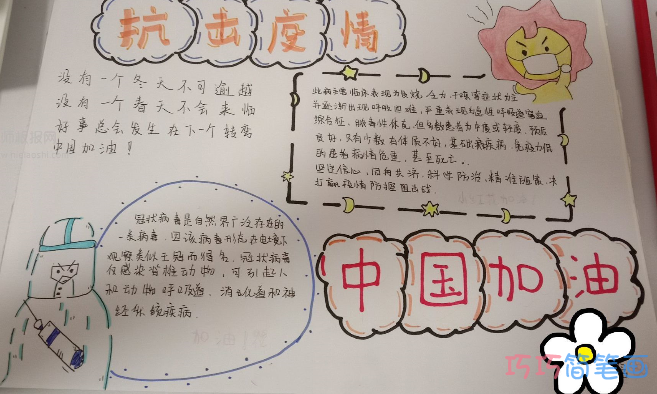 抗击疫情
没有一个冬天不可逾越
没有一个春天不会来临
好事总会发生在下一个转弯
中国加油!
此病毒临床表现为发烧、乏力、干咳等症状为主
并逐渐出现呼吸困难,严重表现为急性呼吸窘迫
综合征
良好,只有少数
甚至死亡.
坚定信心,同舟共济、科学防治、精准施策、决
打赢疫情防控阻击战
冠状病毒是自然界广泛存在的
一类病毒,因该病毒形态在电镜下
观察类似王冠而得名,冠状病毒
仅感染脊椎动物,可引起人
和动物呼吸道、消化道和神
经系统疾病
中国加油
巧巧简笔画